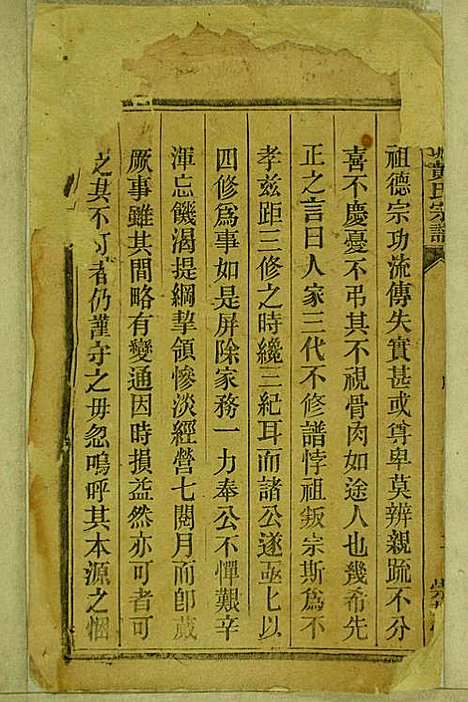 黃氏宗譜
祖德宗功流傳失實甚或尊卑莫辨親疏不分
喜不慶憂不弔其不視骨肉如途人也幾希先
正之言曰人家三代不修譜悖祖叛宗斯為不
孝茲距三修之時纔三紀耳而諸公遂亟亟以
四修為事如是屏除家務一力奉公不憚艱辛
渾忘饑渴提綱挈領慘淡經營七閱月而卽蕆
厥事雖其間略有變通因時損益然亦可者可
之其不可者仍謹守之毋忽嗚呼其本源之悃